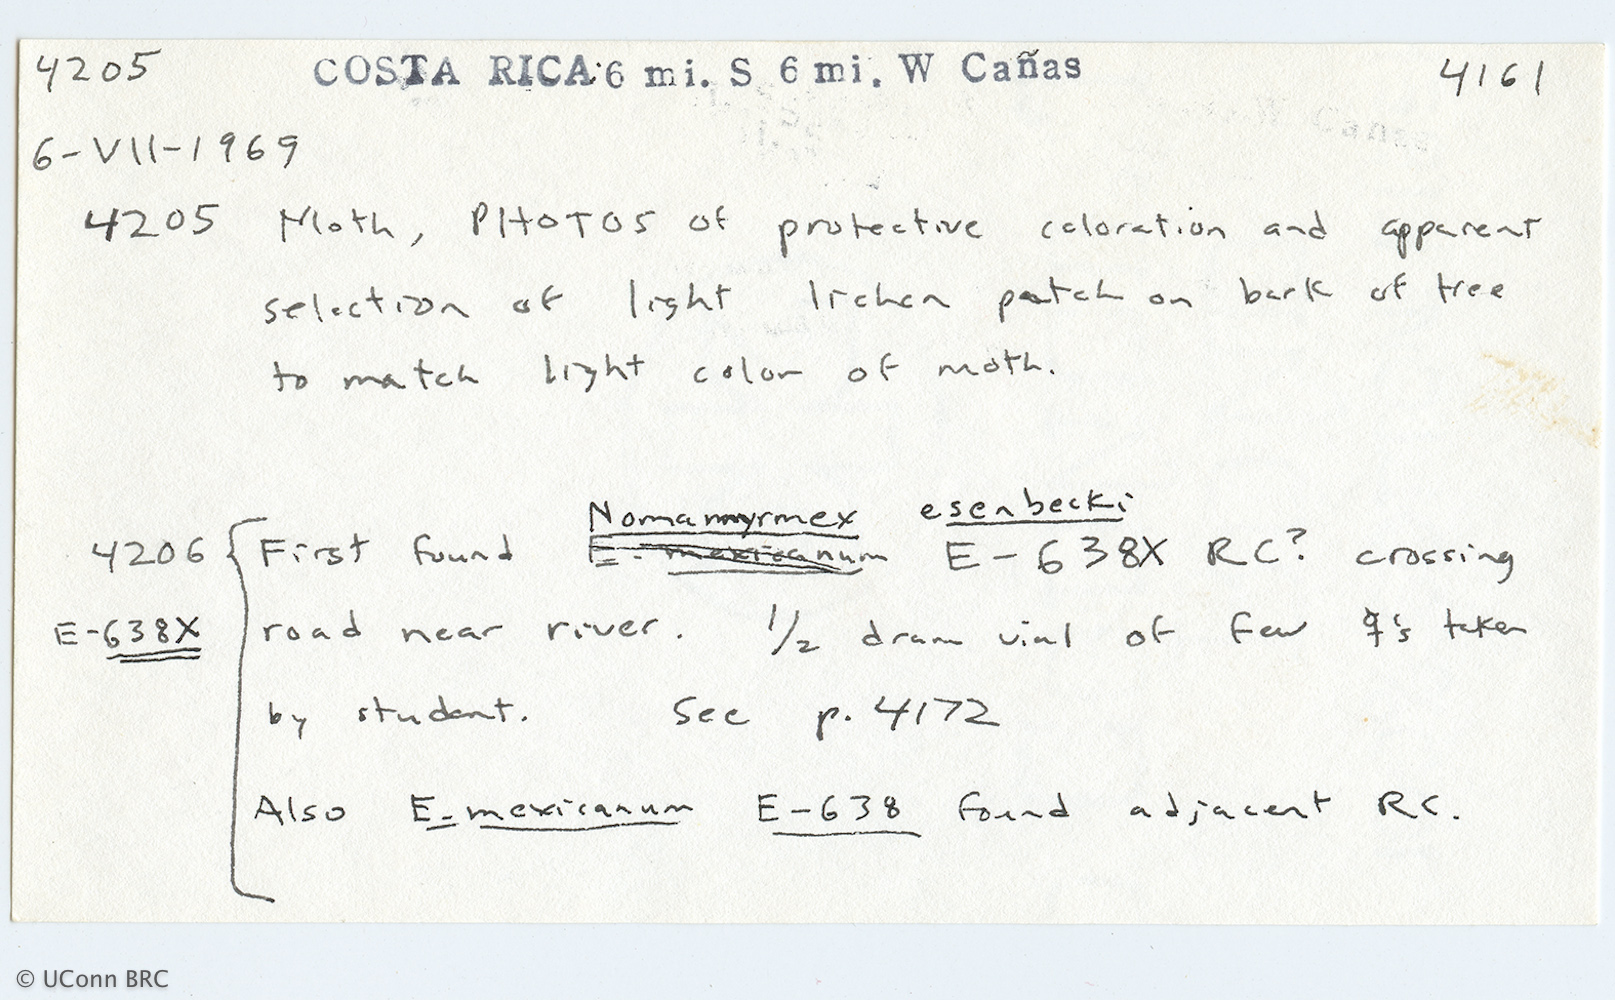 4205 COSTA RICA 6 mi. S 6 mi. W Cañas 4161
6-VII-1969
4205 Moth, PHOTOS of protective coloration and apparent
selection of light lichen patch on bark of tree
to match light color of moth.
Nomamyrmex esenbecki
4206 First found E. mexicanum E-638X RC? crossing
E-638X road near river. 1/2 dram vial of few ☿'s taken
by student. See p. 4172
Also E. mexicanum E-638 found adjacent RC.
© UConn BRC